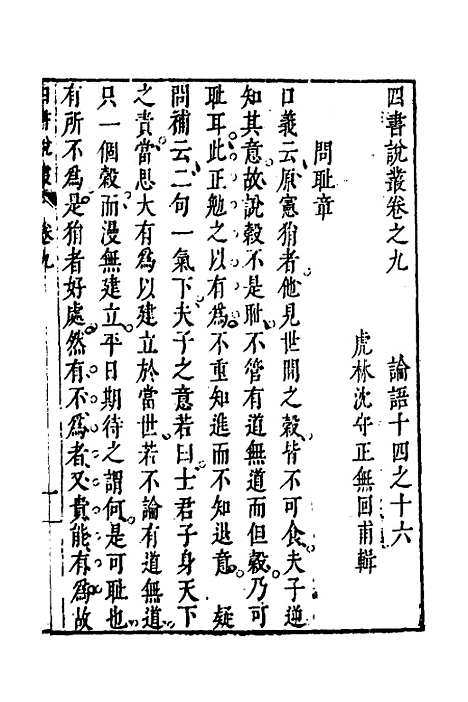 四書說叢卷之九　論語十四之十六
虎林沈守正無回甫輯
問耻章
口義云原憲狷者他見世間之穀皆不可食夫子逆
知其意故說穀不是耻不管有道無道而但穀乃可
耻耳此正勉之以有為不重知進而不知退意　疑
問補云二句一氣下夫子之意若曰士君子身天下
之責當思大有為以建立於當世若不論有道無道
只一個穀而漫無建立平日期待之謂何是可耻也
有所不為是狷者好處然有不為者又貴能有為故
四書說叢　卷九　一